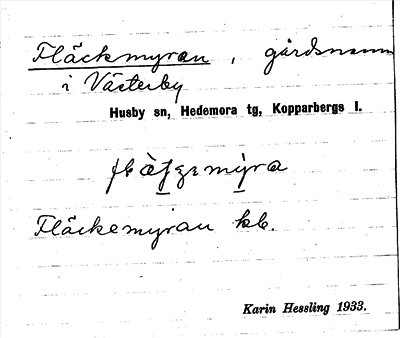 Fläckmyran, gårdsnamn
i Västerby
Husby sn, Hedemora tg, Kopparbergs l.
Fläckemyran kb.
Karin Hessling 1933.